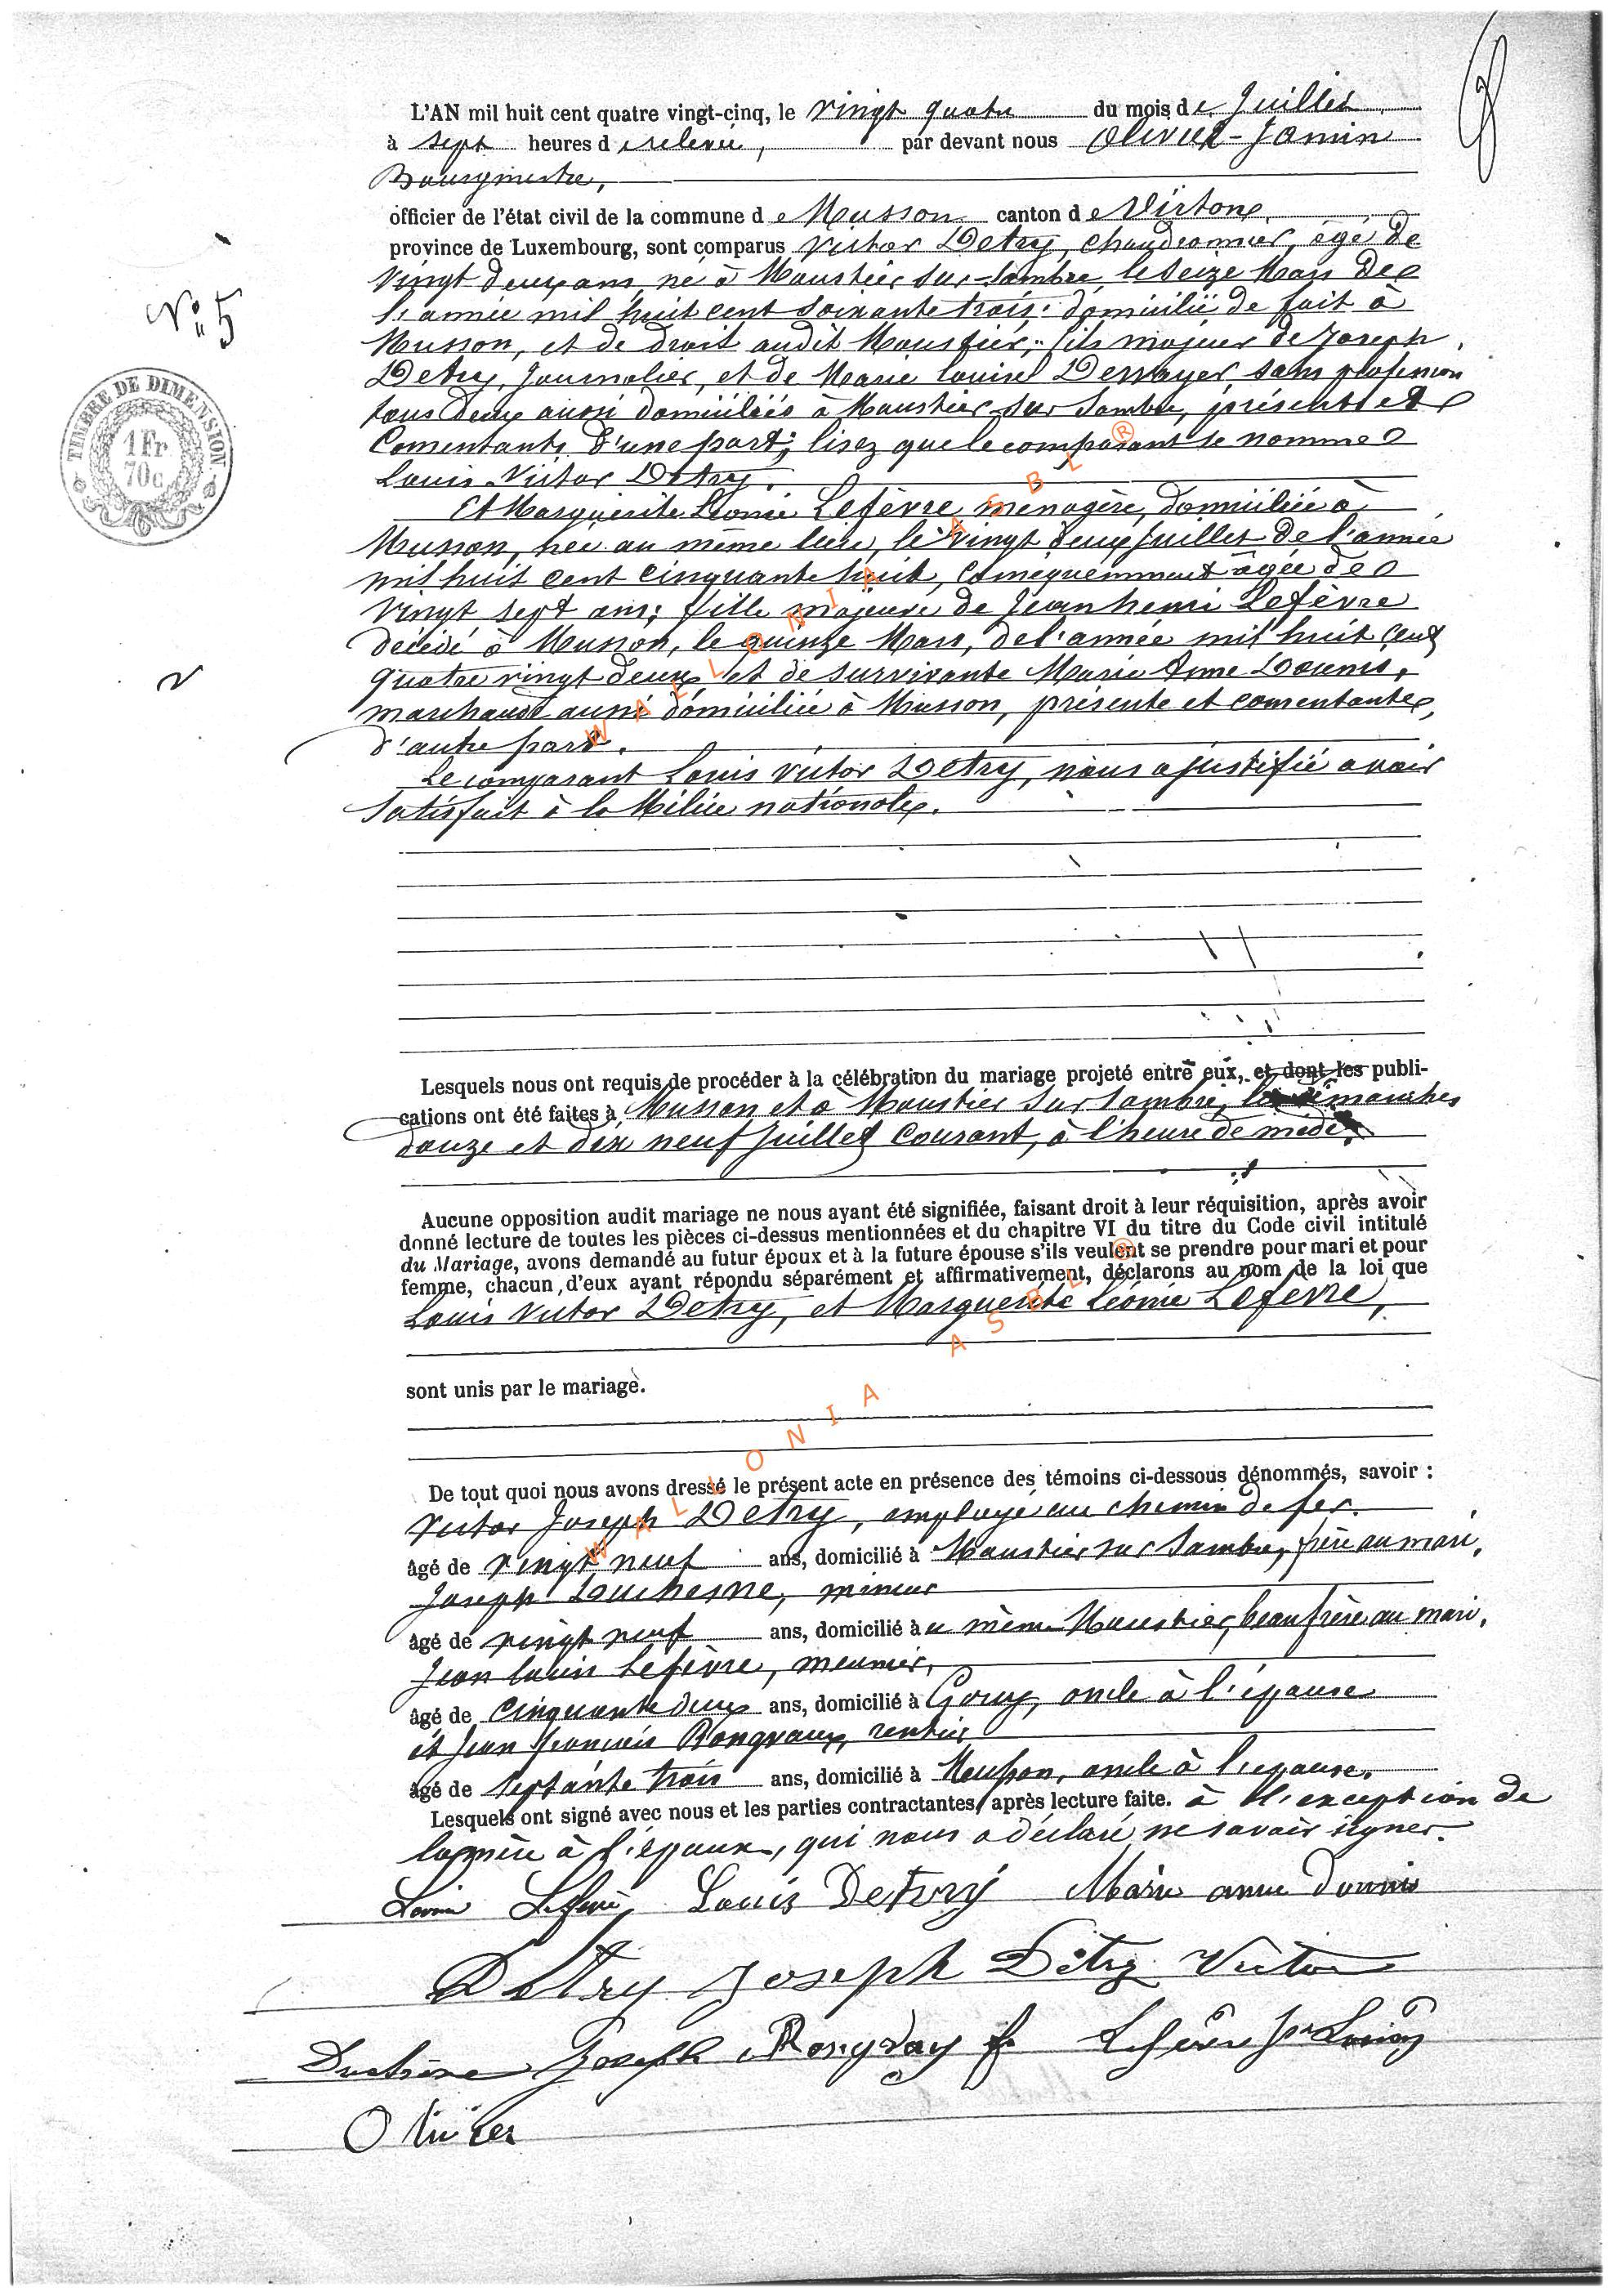 L'AN mil huit cent quatre vingt-cinq, le vingt quatre du mois de Juillet
à sept heures de relevée, par devant nous Olivier-Jamin
Bourgmestre,
officier de l'état civil de la commune de Musson canton de Virton,
province de Luxembourg, sont comparus Victor Detry, chaudronnier, âgé de
vingt deux ans, né à Moustier sur Sambre, le seize Mars de
l'année mil huit cent soixante trois; domicilié de fait à
Musson, et de droit audit Moustier; fils majeur de Joseph
Detry, Journalier, et de Marie Louise Dessayer, sans profession
tous deux aussi domiciliés à Moustier sur Sambre, présents et
Consentants d'une part; lisez que le comparant se nomme
Louis Victor Detry.
Et Marguerite Léonie Lefèvre ménagère, domiciliée à
Musson, née au même lieu, le vingt deux Juillet de l'année
mil huit cent cinquante huit, conséquemment âgée de
vingt sept ans; fille majeure de Jean henri Lefèvre
décédé à Musson, le quinze Mars, de l'année mil huit cent
quatre vingt deux et de survivante Marie Anne Dounis,
marchande aussi domiciliée à Musson, présente et consentante,
d'autre part.
Le comparant Louis Victor Detry, nous a justifié avoir
satisfait à la Milice nationale.
N° 5
TIMBRE DE DIMENSION
1 Fr.
70 c.
Lesquels nous ont requis de procéder à la célébration du mariage projeté entre eux, et dont les publi-
cations ont été faites à Musson et à Moustier sur Sambre, les dimanches
douze et dix neuf Juillet courant, à l'heure de midi.
Aucune opposition audit mariage ne nous ayant été signifiée, faisant droit à leur réquisition, après avoir
donné lecture de toutes les pièces ci-dessus mentionnées et du chapitre VI du titre du Code civil intitulé
du Mariage, avons demandé au futur époux et à la future épouse s'ils veulent se prendre pour mari et pour
femme, chacun d'eux ayant répondu séparément et affirmativement, déclarons au nom de la loi que
Louis Victor Detry, et Marguerite Léonie Lefèvre,
sont unis par le mariage.
De tout quoi nous avons dressé le présent acte en présence des témoins ci-dessous dénommés, savoir :
Victor Joseph Detry, employé au chemin de fer.
âgé de vingt neuf ans, domicilié à Moustier sur Sambre, frère au mari,
Joseph Duchesne, mineur
âgé de vingt neuf ans, domicilié à au même Moustier, beau frère au mari,
Jean Louis Lefèvre, meunier,
âgé de cinquante deux ans, domicilié à Gouy, oncle à l'épouse
et Jean François Rongvaux, rentier
âgé de septante trois ans, domicilié à Musson, oncle à l'épouse.
Lesquels ont signé avec nous et les parties contractantes, après lecture faite. à l'exception de
la mère à l'époux, qui nous a déclaré ne savoir signer.
Léonie Lefèvre Louis Detry Marie anne Dounis
Detry Joseph Détry Victor
Duchesne Joseph Rongvay f Lefèvre Jn Louis
Olivier
WALLONIA ASBL ®
WALLONIA ASBL ®